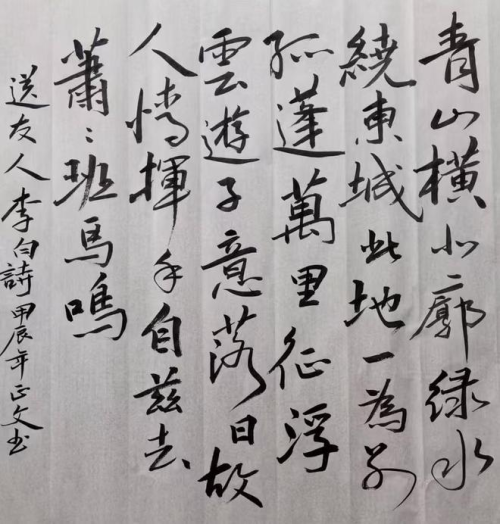 青山橫北郭綠水
繞東城此地一為別
孤蓬萬里征浮
雲遊子意落日故
人情揮手自茲去
蕭〻班馬鳴
送友人李白詩甲辰年正文书